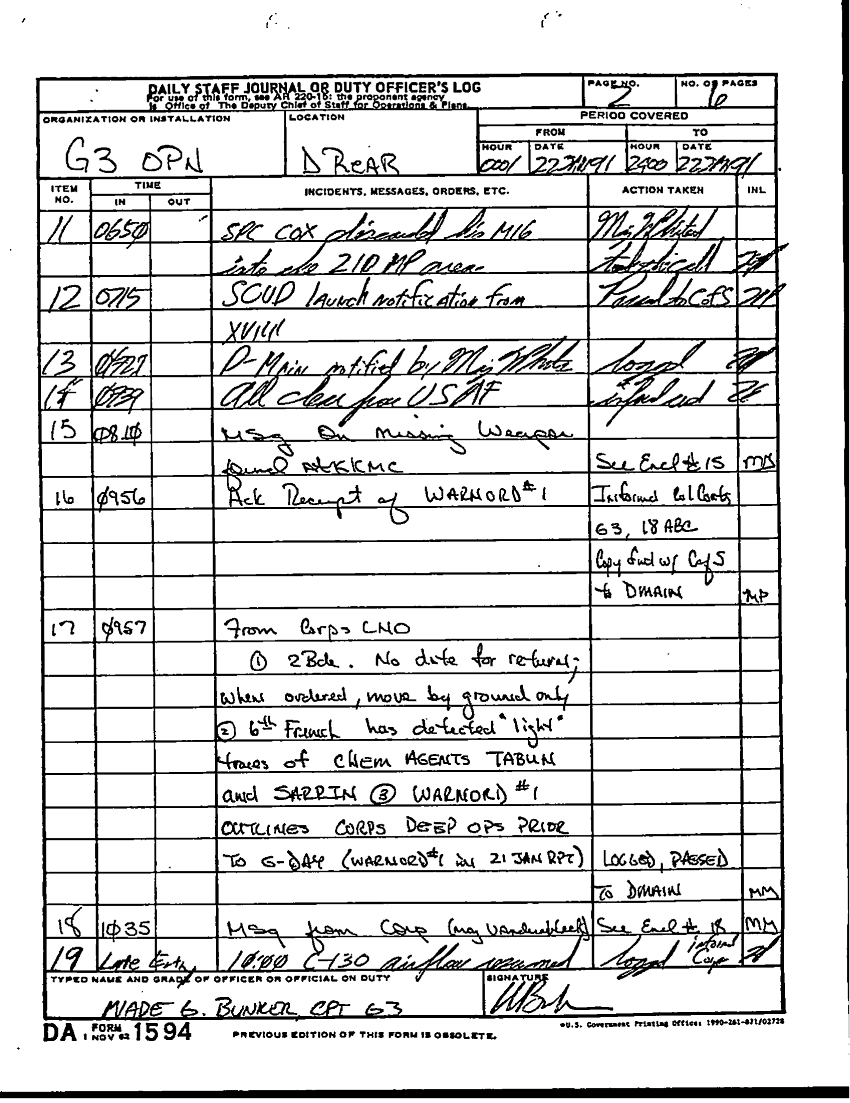 DAILY STAFF JOURNAL OR DUTY OFFICER'S LOG
For use of this form, see AR 220-15; the proponent agency
is Office of The Deputy Chief of Staff for Operations & Plans.
PAGE NO.
2
NO. OF PAGES
6
ORGANIZATION OR INSTALLATION
G3 OPN
LOCATION
D REAR
PERIOD COVERED
FROM
TO
HOUR DATE HOUR DATE
0001 22JAN91 2400 22JAN91
ITEM NO.
TIME
IN OUT
INCIDENTS, MESSAGES, ORDERS, ETC.
ACTION TAKEN
INL
11 0650 SPC COX his M16
into the 21D MP area
12 0715 SCUD launch notification from Passed to CofS
XVIII
13 0727 D-Main notified by Maj White logged
14 0739 All clear from USAF
15 0810 MSg On missing Weapon
found At KKMC See Encl # 15
16 0956 Ack Receipt of WARNORD #1 Informed Col
G3, 18 ABC
Copy w/ CofS
to DMAIN MP
17 0957 From Corps LNO
① 2Bde. No date for return;
when ordered, move by ground only
② 6th French has detected "light"
traces of CHEM AGENTS TABUN
and SARRIN ③ WARNORD #1
OUTLINES CORPS DEEP OPS PRIOR
TO G-DAY (WARNORD #1 in 21 JAN RPT) LOGGED, PASSED
TO DMAIN MM
18 1035 MSg from Corp See Encl # 18 MM
19 Late Entry 10:00 C-130 airflow resumed logged inform Corp
TYPED NAME AND GRADE OF OFFICER OR OFFICIAL ON DUTY
WADE G. BUNKER CPT G3
SIGNATURE
DA FORM 1 NOV 62 1594
PREVIOUS EDITION OF THIS FORM IS OBSOLETE.
U.S. Government Printing Office: 1990-261-871/02728